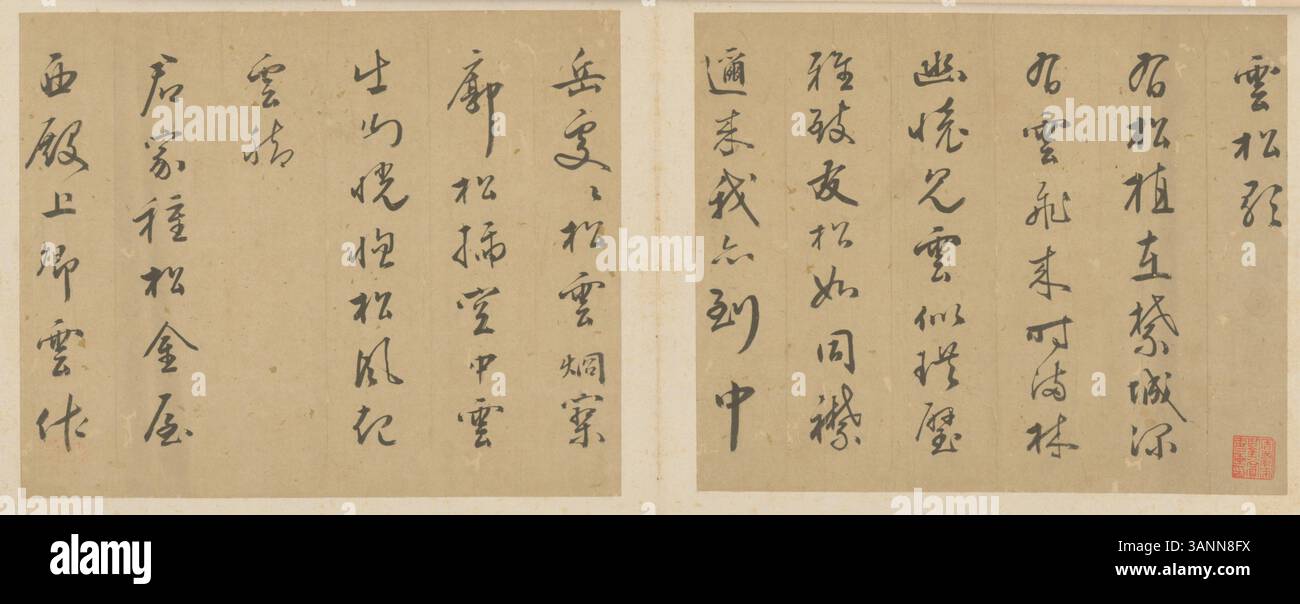 雲松歌
有松植在禁城深
有雲飛來時滿林
幽懷見雲似拱璧
雅致友松如同襟
邇來我亦到中
岳處〻松雲烟寥
廓松掃空中雲
出山愰惚松風起
雲晴
君家種松金屋
西殿上卿雲作
alamy
Image ID: 3ANN8FX
www.alamy.com